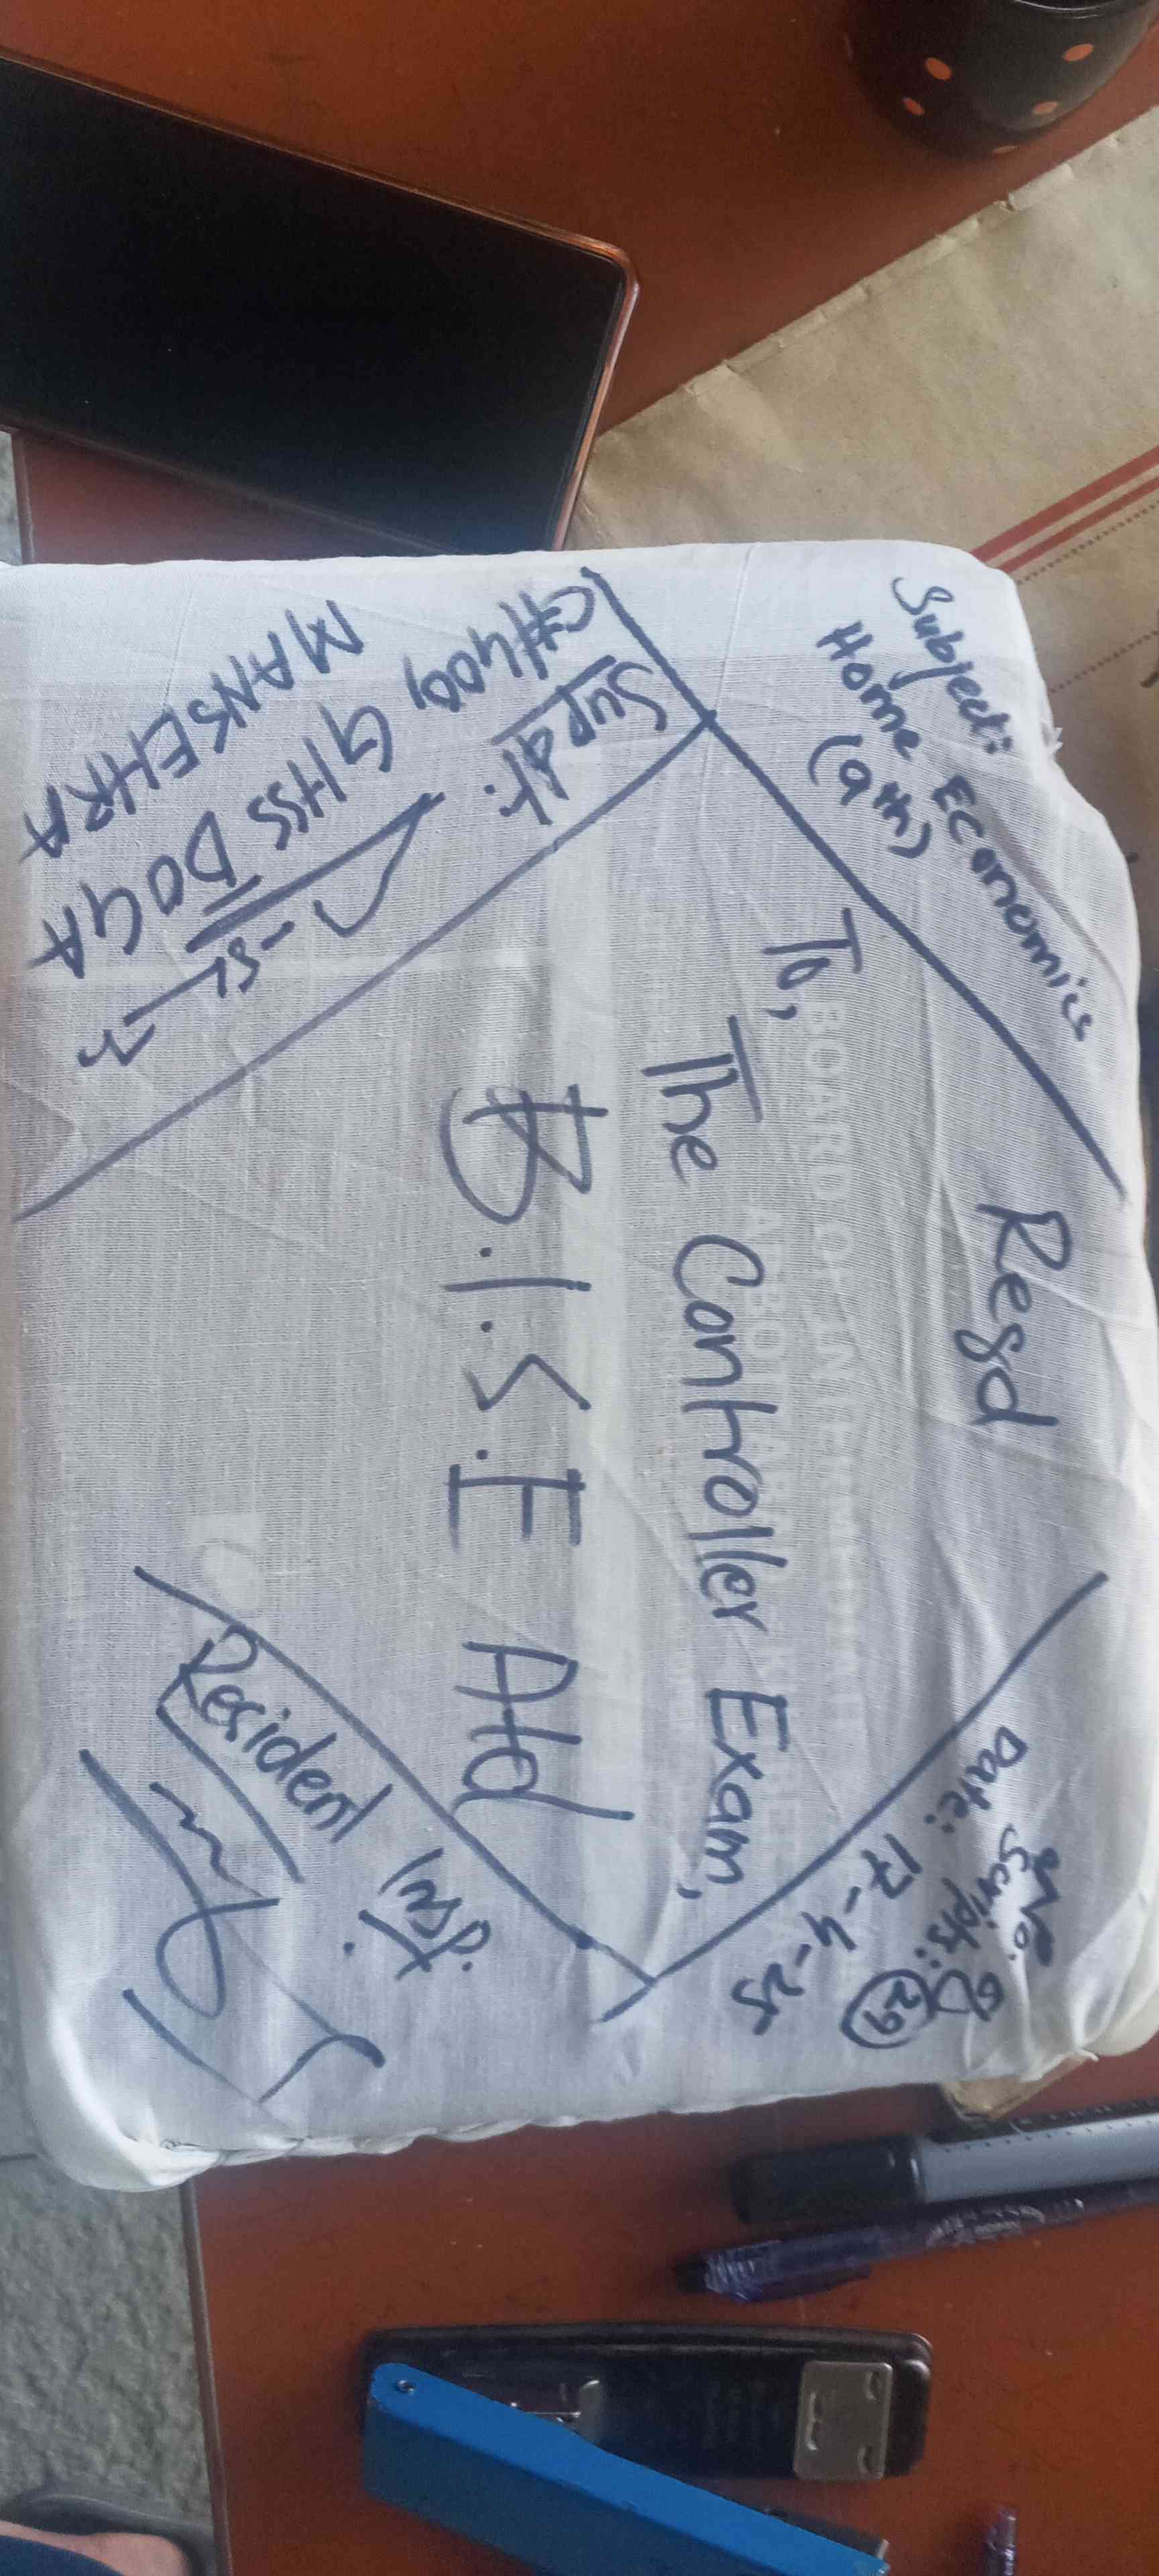 Subject:
Home Economics
(9th)
Regd
No.
Scripts: 29
Date: 17-4-25
To,
The Controller Exam,
B.I.S.E Atd
Supdt.
C#400,
GHSS DOGA
MANSEHRA
Resident Insp.